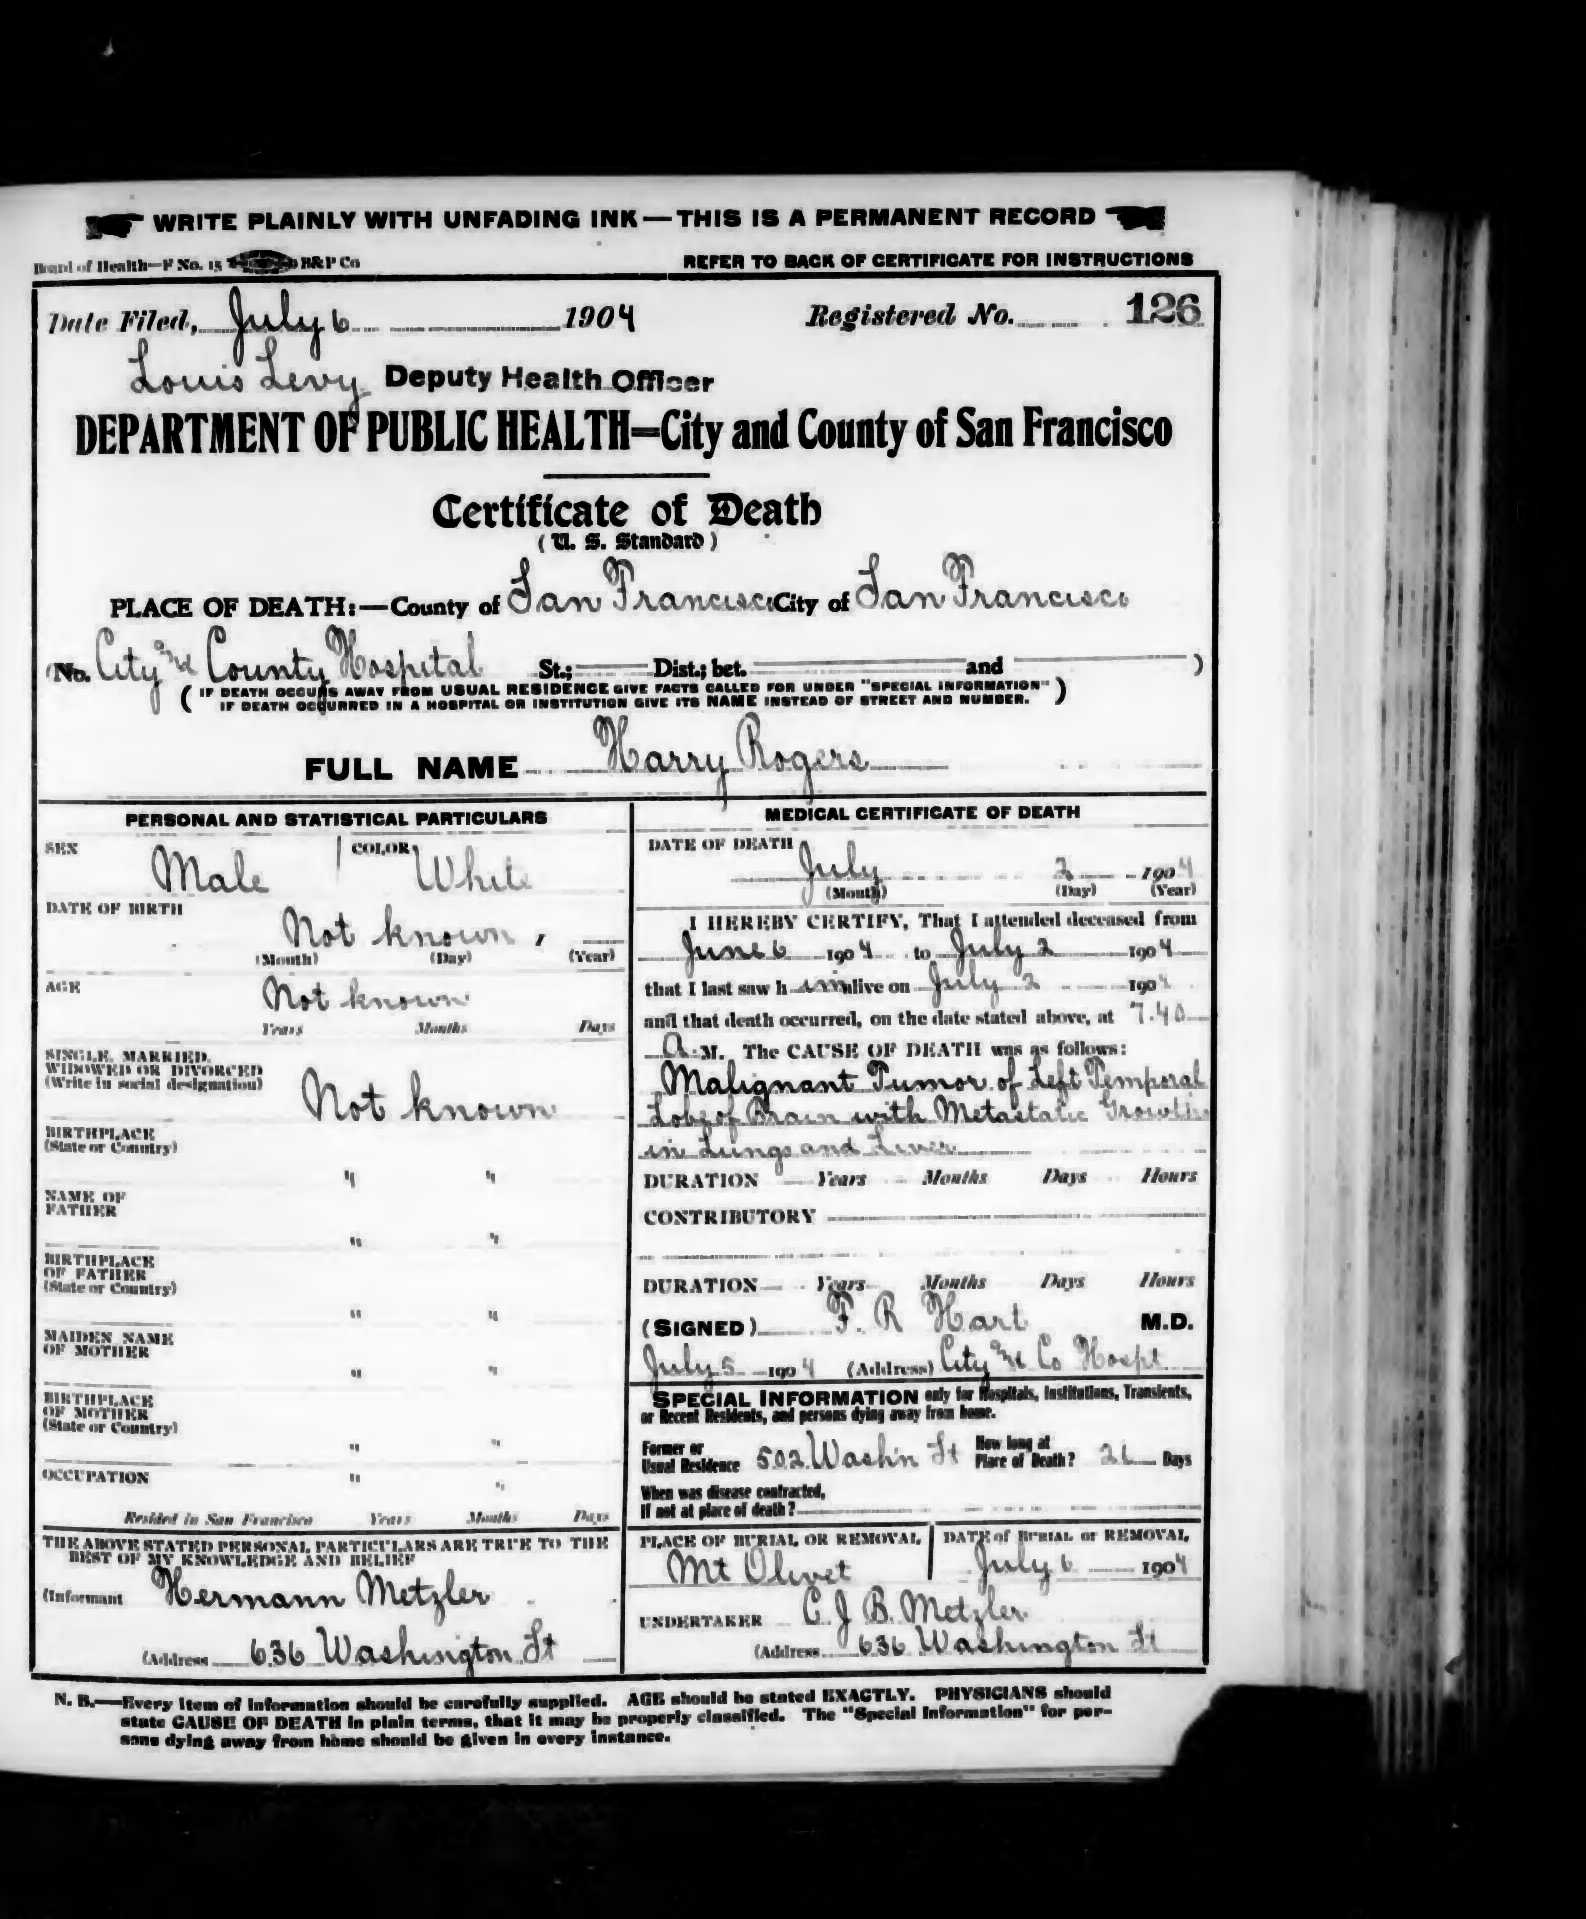 WRITE PLAINLY WITH UNFADING INK—THIS IS A PERMANENT RECORD
Board of Health—F No. 15 B&P Co
REFER TO BACK OF CERTIFICATE FOR INSTRUCTIONS
Date Filed, July 6 1904 Registered No. 126
Louis Levy Deputy Health Officer
DEPARTMENT OF PUBLIC HEALTH=City and County of San Francisco
Certificate of Death
(U. S. Standard)
PLACE OF DEATH:—County of San Francisco City of San Francisco
(No. City and County Hospital St.; Dist.; bet. and )
(IF DEATH OCCURS AWAY FROM USUAL RESIDENCE GIVE FACTS CALLED FOR UNDER "SPECIAL INFORMATION"
IF DEATH OCCURRED IN A HOSPITAL OR INSTITUTION GIVE ITS NAME INSTEAD OF STREET AND NUMBER.)
FULL NAME Harry Rogers
PERSONAL AND STATISTICAL PARTICULARS
SEX Male COLOR White
DATE OF BIRTH
Not known,
(Month) (Day) (Year)
AGE Not known
Years Months Days
SINGLE, MARRIED,
WIDOWED OR DIVORCED
(Write in social designation) Not known
BIRTHPLACE
(State or Country)
" "
NAME OF
FATHER
" "
BIRTHPLACE
OF FATHER
(State or Country)
" "
MAIDEN NAME
OF MOTHER
" "
BIRTHPLACE
OF MOTHER
(State or Country)
" "
OCCUPATION " "
Resided in San Francisco Years Months Days
THE ABOVE STATED PERSONAL PARTICULARS ARE TRUE TO THE
BEST OF MY KNOWLEDGE AND BELIEF
(Informant Hermann Metzler
(Address 636 Washington St
MEDICAL CERTIFICATE OF DEATH
DATE OF DEATH
July 2 1904
(Month) (Day) (Year)
I HEREBY CERTIFY, That I attended deceased from
June 6 1904 to July 2 1904
that I last saw h im alive on July 2 1904
and that death occurred, on the date stated above, at 7.40
A. M. The CAUSE OF DEATH was as follows:
Malignant Tumor of Left Temporal
Lobe of Brain with Metastatic Growths
in Lungs and Liver
DURATION Years Months Days Hours
CONTRIBUTORY
DURATION Years Months Days Hours
(SIGNED) F. R Hart M.D.
July 5 1904 (Address) City and Co Hospt
SPECIAL INFORMATION only for Hospitals, Institutions, Transients,
or Recent Residents, and persons dying away from home.
Former or
Usual Residence 502 Washn St How long at
Place of Death? 26 Days
When was disease contracted,
If not at place of death?
PLACE OF BURIAL OR REMOVAL DATE of BURIAL or REMOVAL
Mt Olivet July 6 1904
UNDERTAKER C. J. B. Metzler
(Address 636 Washington St
N. B.—Every item of information should be carefully supplied. AGE should be stated EXACTLY. PHYSICIANS should
state CAUSE OF DEATH in plain terms, that it may be properly classified. The "Special Information" for per-
sons dying away from home should be given in every instance.